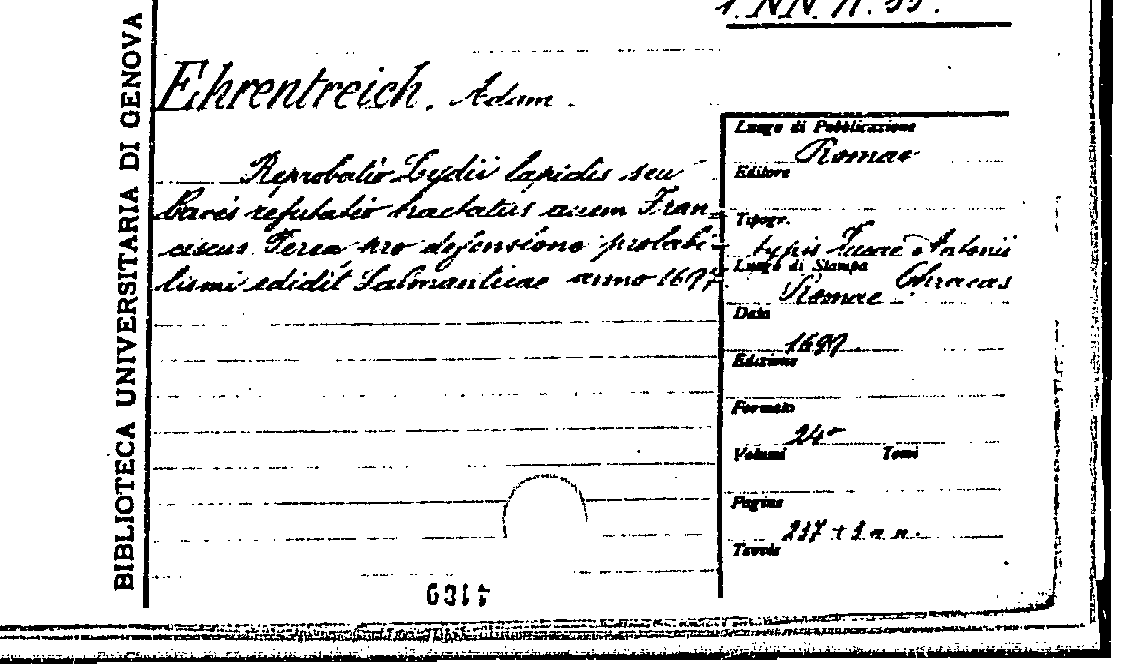 1. NN. n. 33.
BIBLIOTECA UNIVERSITARIA DI GENOVA
Ehrentreich, Adam.
Reprobatio Lydii lapidis seu
brevis refutatio tractatus quem Fran-
ciscus Perea pro defensione probabi-
lismi edidit Salmanticae anno 1697
Luogo di Pubblicazione
Romae
Editore
Tipogr.
typis Lucae Antonii
Chracas
Luogo di Stampa
Romae
Data
1699
Edizione
Formato
24°
Volumi Tomi
Pagine
217 + 3 n n.
Tavole